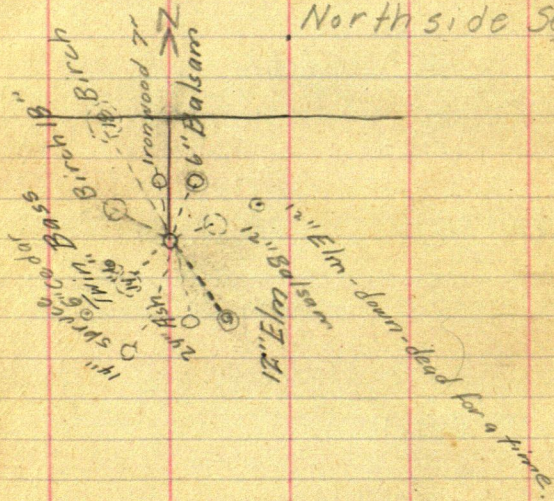 Northside
Birch
Ironwood 7"
6" Balsam
Birch 18"
Bass
6" Cedar
14" Spruce
24" Ash
12" Elm
12" Balsam
12" Elm-down-dead for a time.